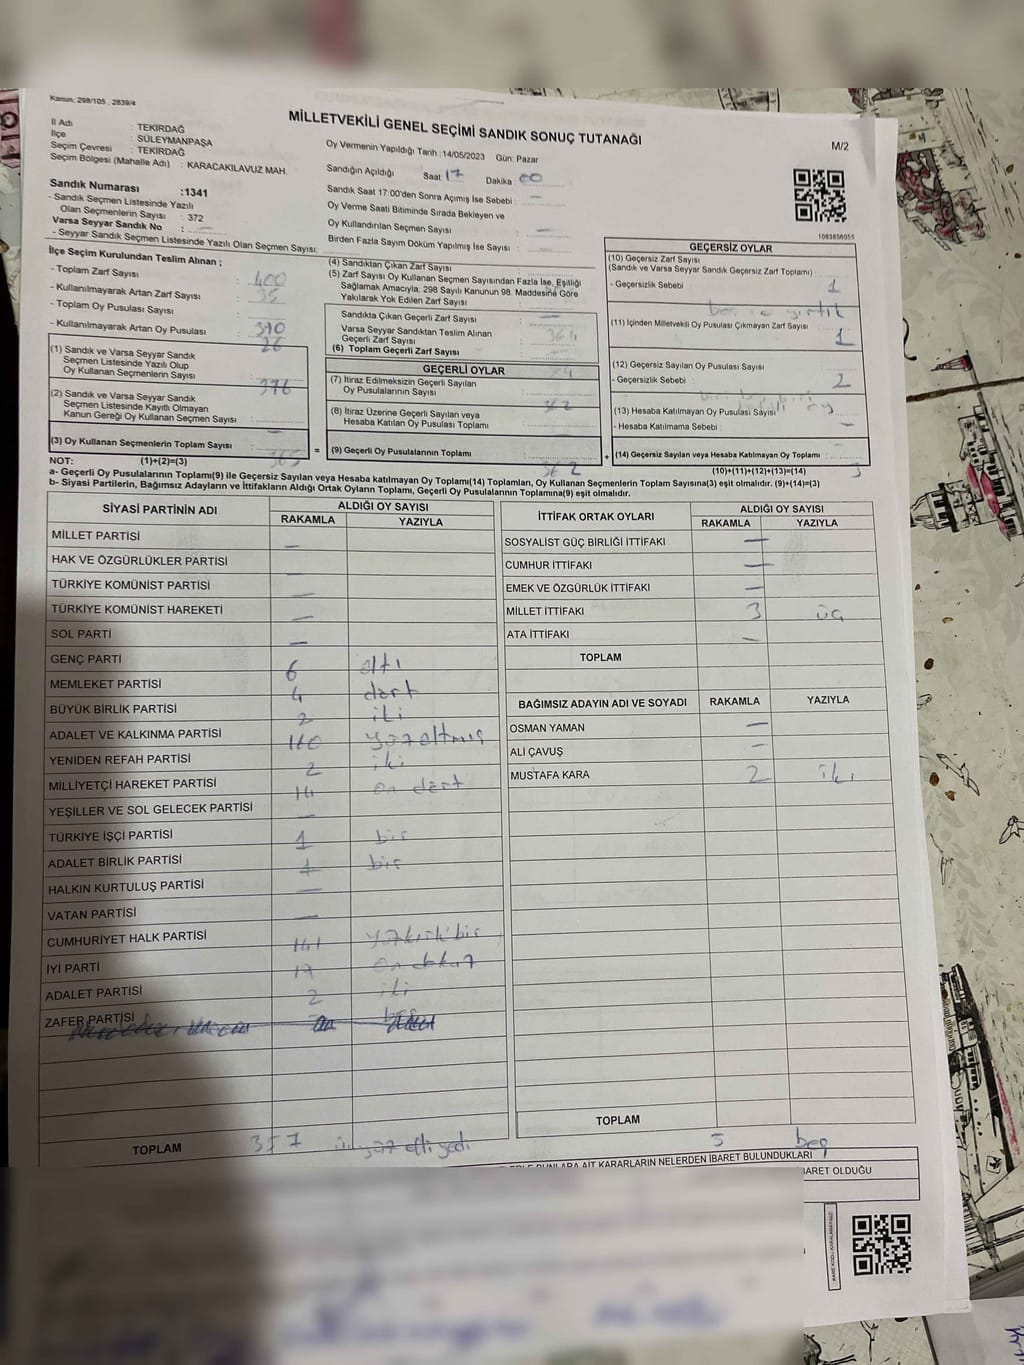 Kanun; 298/105 , 2839/4
MİLLETVEKİLİ GENEL SEÇİMİ SANDIK SONUÇ TUTANAĞI
M/2
İl Adı : TEKİRDAĞ
İlçe : SÜLEYMANPAŞA
Seçim Çevresi : TEKİRDAĞ
Seçim Bölgesi (Mahalle Adı) : KARACAKILAVUZ MAH.
Sandık Numarası :1341
- Sandık Seçmen Listesinde Yazılı
Olan Seçmenlerin Sayısı : 372
Varsa Seyyar Sandık No :
- Seyyar Sandık Seçmen Listesinde Yazılı Olan Seçmen Sayısı:
Oy Vermenin Yapıldığı Tarih :14/05/2023 Gün: Pazar
Sandığın Açıldığı Saat 17 Dakika 00
Sandık Saat 17:00'den Sonra Açımış İse Sebebi : —
Oy Verme Saati Bitiminde Sırada Bekleyen ve
Oy Kullandırılan Seçmen Sayısı : —
Birden Fazla Sayım Döküm Yapılmış İse Sayısı :
1083856055
İlçe Seçim Kurulundan Teslim Alınan ;
- Toplam Zarf Sayısı : 400
- Kullanılmayarak Artan Zarf Sayısı : 35
- Toplam Oy Pusulası Sayısı : 390
- Kullanılmayarak Artan Oy Pusulası : 26
(1) Sandık ve Varsa Seyyar Sandık
Seçmen Listesinde Yazılı Olup
Oy Kullanan Seçmenlerin Sayısı
(2) Sandık ve Varsa Seyyar Sandık
Seçmen Listesinde Kayıtlı Olmayan
Kanun Gereği Oy Kullanan Seçmen Sayısı
(3) Oy Kullanan Seçmenlerin Toplam Sayısı : 365
(4) Sandıktan Çıkan Zarf Sayısı
(5) Zarf Sayısı Oy Kullanan Seçmen Sayısından Fazla İse, Eşitliği
Sağlamak Amacıyla, 298 Sayılı Kanunun 98. Maddesine Göre
Yakılarak Yok Edilen Zarf Sayısı
Sandıkta Çıkan Geçerli Zarf Sayısı : —
Varsa Seyyar Sandıktan Teslim Alınan
Geçerli Zarf Sayısı : 364
(6) Toplam Geçerli Zarf Sayısı
GEÇERLİ OYLAR
(7) İtiraz Edilmeksizin Geçerli Sayılan
Oy Pusulalarının Sayısı : 362
(8) İtiraz Üzerine Geçerli Sayılan veya
Hesaba Katılan Oy Pusulası Toplamı
=
(9) Geçerli Oy Pusulalarının Toplamı : 362
+
GEÇERSİZ OYLAR
(10) Geçersiz Zarf Sayısı
(Sandık ve Varsa Seyyar Sandık Geçersiz Zarf Toplamı) :
- Geçersizlik Sebebi : 1
yırtık
(11) İçinden Milletvekili Oy Pusulası Çıkmayan Zarf Sayısı 1
(12) Geçersiz Sayılan Oy Pusulası Sayısı
- Geçersizlik Sebebi : 2
(13) Hesaba Katılmayan Oy Pusulası Sayısı
- Hesaba Katılmama Sebebi : —
(14) Geçersiz Sayılan veya Hesaba Katılmayan Oy Toplamı : 3
NOT: (1)+(2)=(3)
(10)+(11)+(12)+(13)=(14)
a- Geçerli Oy Pusulalarının Toplamı(9) ile Geçersiz Sayılan veya Hesaba katılmayan Oy Toplamı(14) Toplamları, Oy Kullanan Seçmenlerin Toplam Sayısına(3) eşit olmalıdır. (9)+(14)=(3)
b- Siyasi Partilerin, Bağımsız Adayların ve İttifakların Aldığı Ortak Oyların Toplamı, Geçerli Oy Pusulalarının Toplamına(9) eşit olmalıdır.
SİYASİ PARTİNİN ADI ALDIĞI OY SAYISI
RAKAMLA YAZIYLA
MİLLET PARTİSİ —
HAK VE ÖZGÜRLÜKLER PARTİSİ —
TÜRKİYE KOMÜNİST PARTİSİ —
TÜRKİYE KOMÜNİST HAREKETİ —
SOL PARTİ —
GENÇ PARTİ 6 altı
MEMLEKET PARTİSİ 4 dört
BÜYÜK BİRLİK PARTİSİ 2 iki
ADALET VE KALKINMA PARTİSİ 160 yüzaltmış
YENİDEN REFAH PARTİSİ 2 iki
MİLLİYETÇİ HAREKET PARTİSİ 14 on dört
YEŞİLLER VE SOL GELECEK PARTİSİ —
TÜRKİYE İŞÇİ PARTİSİ 1 bir
ADALET BİRLİK PARTİSİ 1 bir
HALKIN KURTULUŞ PARTİSİ —
VATAN PARTİSİ —
CUMHURİYET HALK PARTİSİ 141 yüzkırkbir
İYİ PARTİ 19 on dokuz
ADALET PARTİSİ 2 iki
ZAFER PARTİSİ beş
TOPLAM 357 üçyüz elli yedi
İTTİFAK ORTAK OYLARI ALDIĞI OY SAYISI
RAKAMLA YAZIYLA
SOSYALİST GÜÇ BİRLİĞİ İTTİFAKI —
CUMHUR İTTİFAKI —
EMEK VE ÖZGÜRLÜK İTTİFAKI —
MİLLET İTTİFAKI 3 üç
ATA İTTİFAKI —
TOPLAM
BAĞIMSIZ ADAYIN ADI VE SOYADI RAKAMLA YAZIYLA
OSMAN YAMAN —
ALİ ÇAVUŞ —
MUSTAFA KARA 2 iki
TOPLAM 5 beş
BUNLARA AİT KARARLARIN NELERDEN İBARET BULUNDUKLARI
BARET OLDUĞU